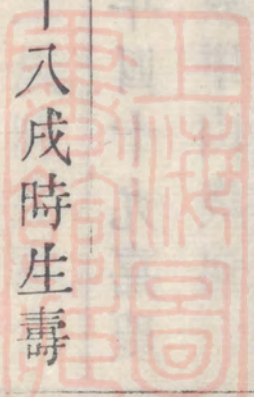 十八戌時生壽
上海圖
書館藏